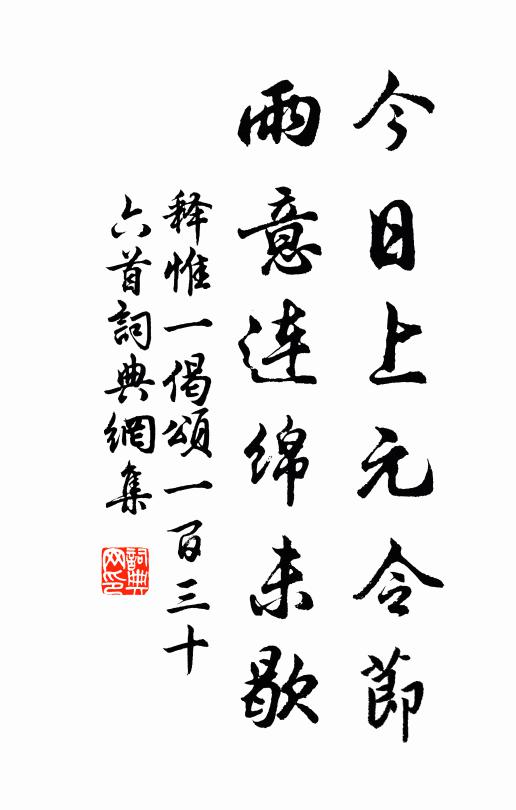 今日上元令節
雨意連綿未歇
释惟一偈頌一百三十
六首詞典網集
詞典网印